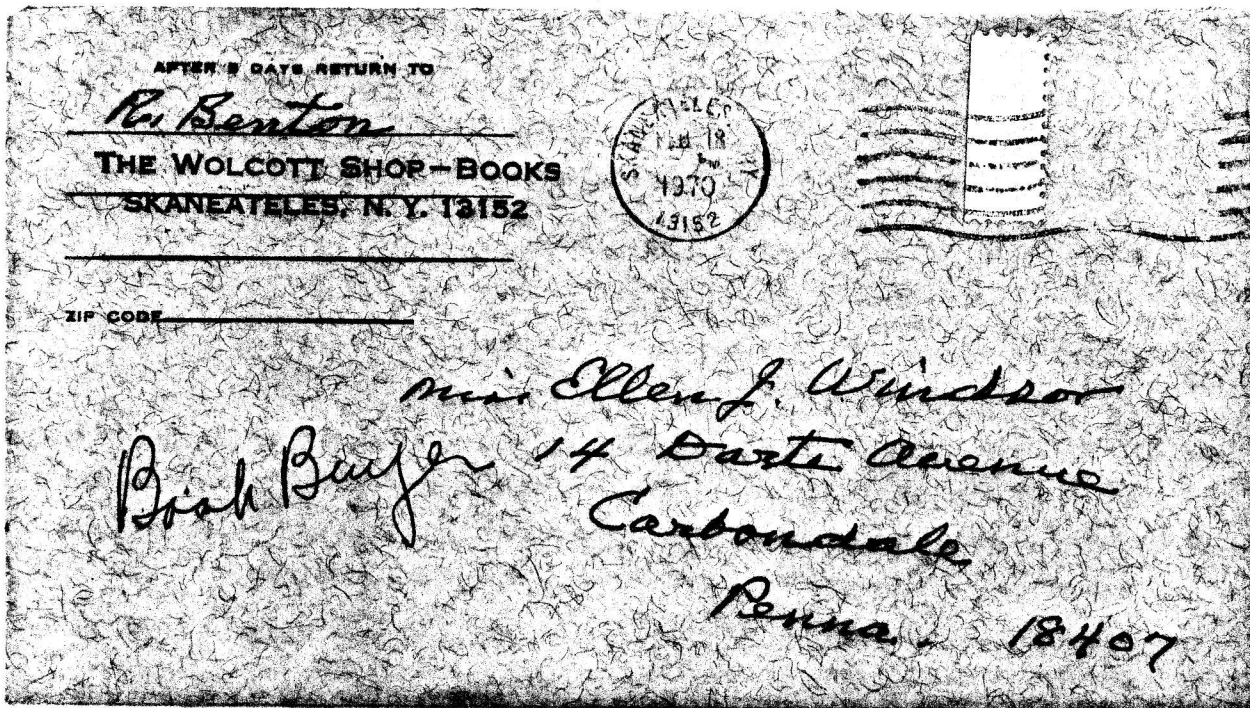 AFTER 5 DAYS RETURN TO
R. Benton
THE WOLCOTT SHOP-BOOKS
SKANEATELES, N. Y. 13152
ZIP CODE
SKANEATELES NY
FEB 18
PM
1970
13152
Miss Ellen J. Windsor
14 Darte Avenue
Carbondale
Penna. 18407
Book Buyer